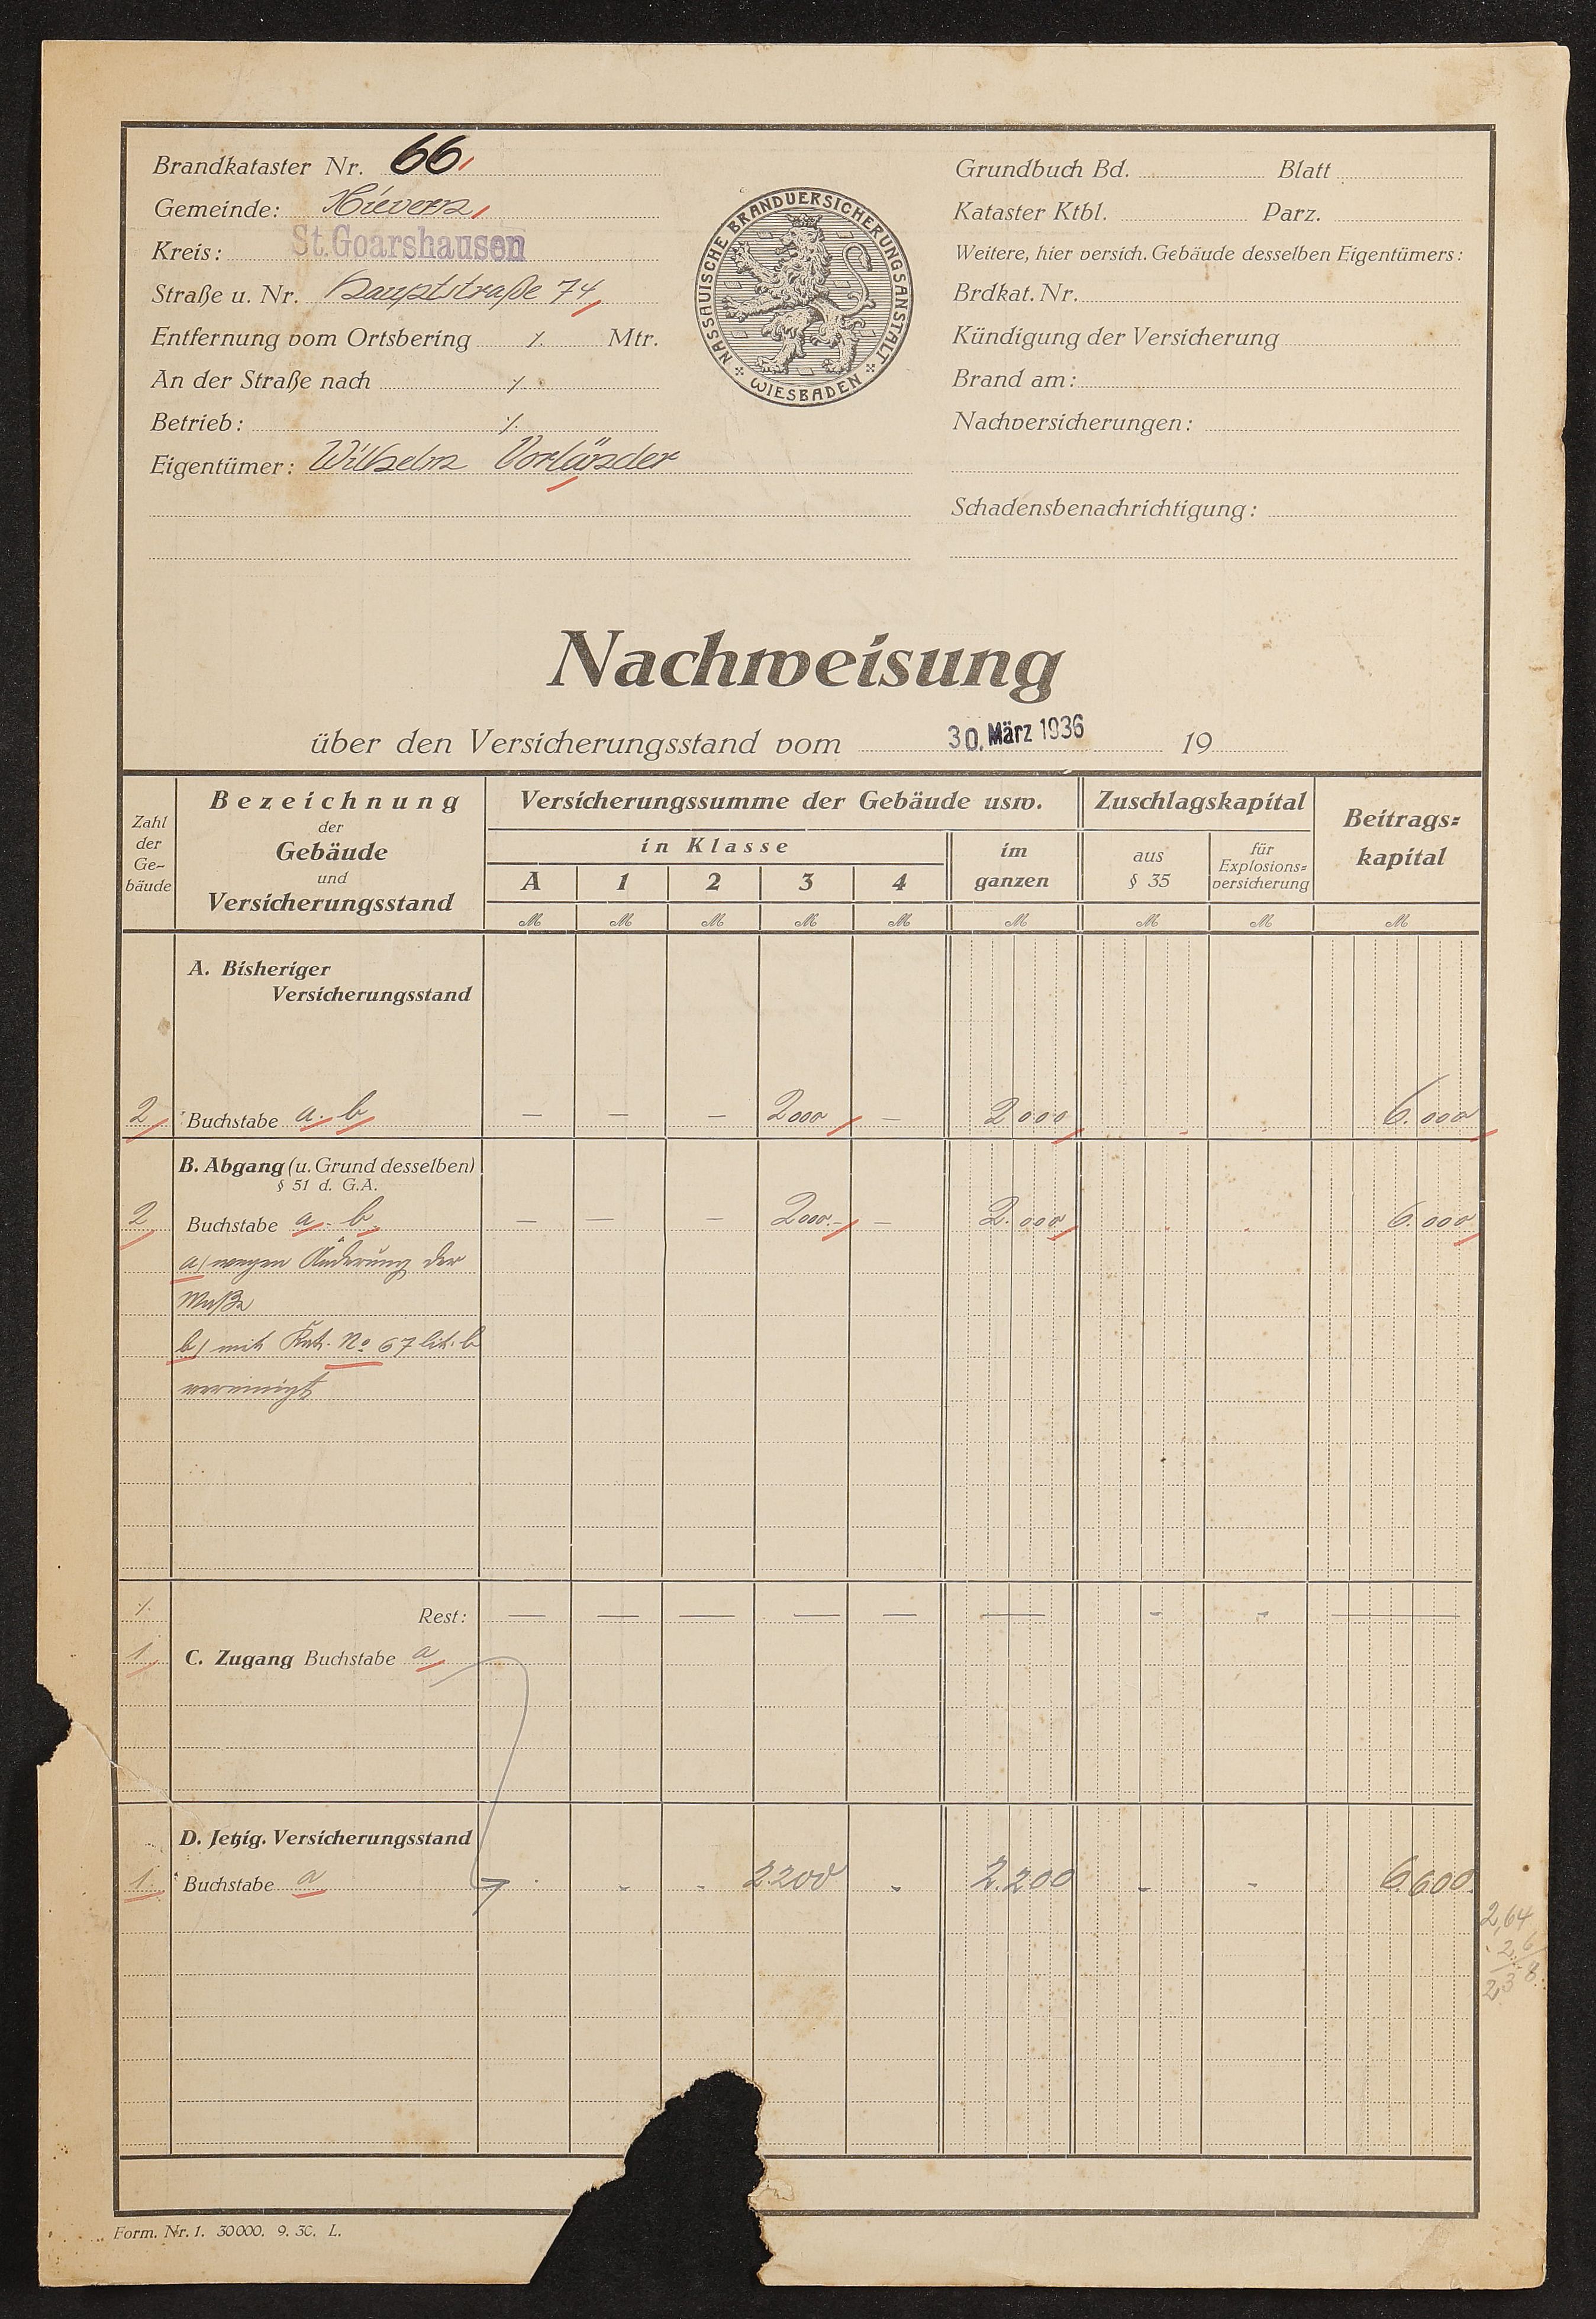 Brandkataster Nr. 66
Gemeinde: Nievern
Kreis: St. Goarshausen
Straße u. Nr. Hauptstraße 74
Entfernung vom Ortsbering ⁒ Mtr.
An der Straße nach ⁒
Betrieb: ⁒
Eigentümer: Wilhelm Vorländer
NASSAUISCHE BRANDVERSICHERUNGSANSTALT
WIESBADEN
Grundbuch Bd. Blatt
Kataster Ktbl. Parz.
Weitere, hier versich. Gebäude desselben Eigentümers:
Brdkat. Nr.
Kündigung der Versicherung
Brand am:
Nachversicherungen:
Schadensbenachrichtigung:
Nachweisung
über den Versicherungsstand vom 30. März 1936 19
Zahl der Ge-bäude
Bezeichnung der Gebäude und Versicherungsstand
Versicherungssumme der Gebäude usw.
in Klasse
A 1 2 3 4
im ganzen
Zuschlagskapital
aus § 35
für Explosions-versicherung
Beitrags-kapital
M M M M M M M M M
A. Bisheriger
Versicherungsstand
2 Buchstabe a. b — — — 2000 — 2000 6.000
B. Abgang (u. Grund desselben)
§ 51 d. G.A.
2 Buchstabe a. b. — — — 2000.- — 2.000 6.000
a) wegen Änderung der
Maße
b) mit Kat. No 67 lit. b
vereinigt
⁒ Rest: — — — — — — - - —
1 C. Zugang Buchstabe a
D. Jetzig. Versicherungsstand
1. Buchstabe a - - - 2200 - 2.200 - - 6.600
2,64
Form. Nr. 1. 30000. 9. 30. L.